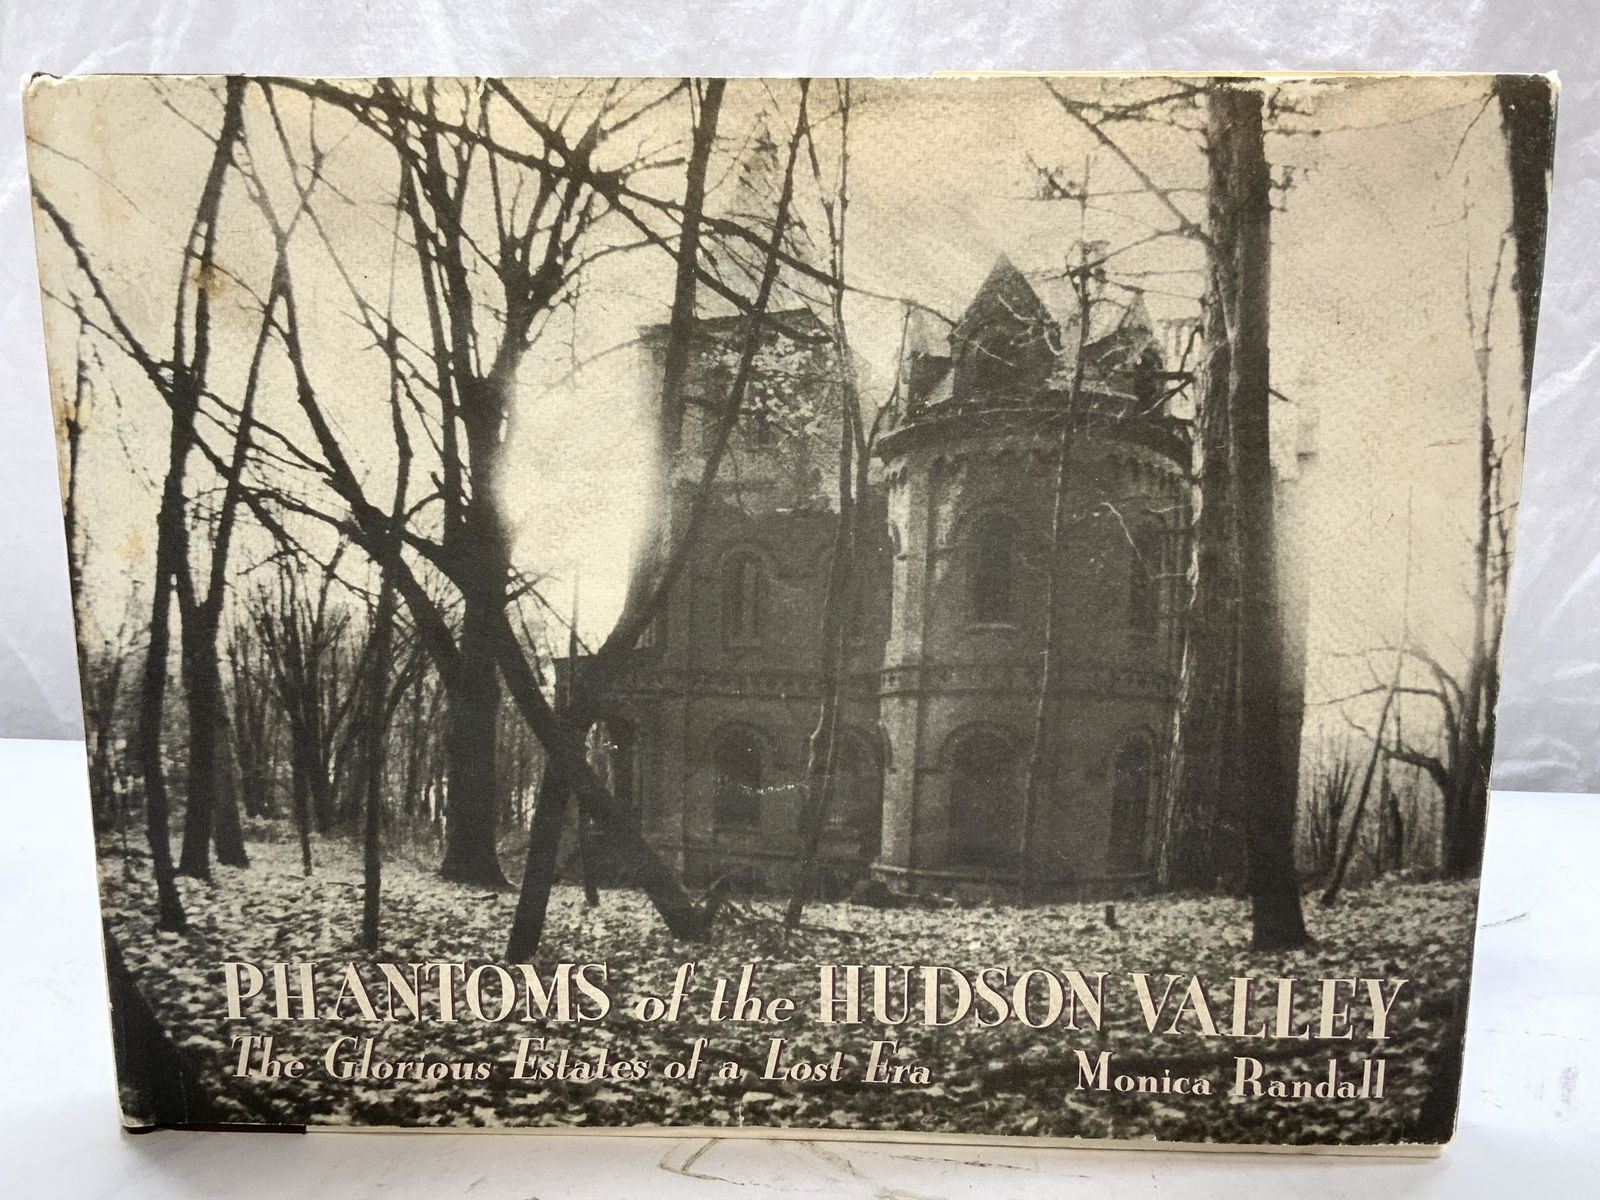 PHANTOMS of the HUDSON VALLEY
The Glorious Estates of a Lost Era
Monica Randall